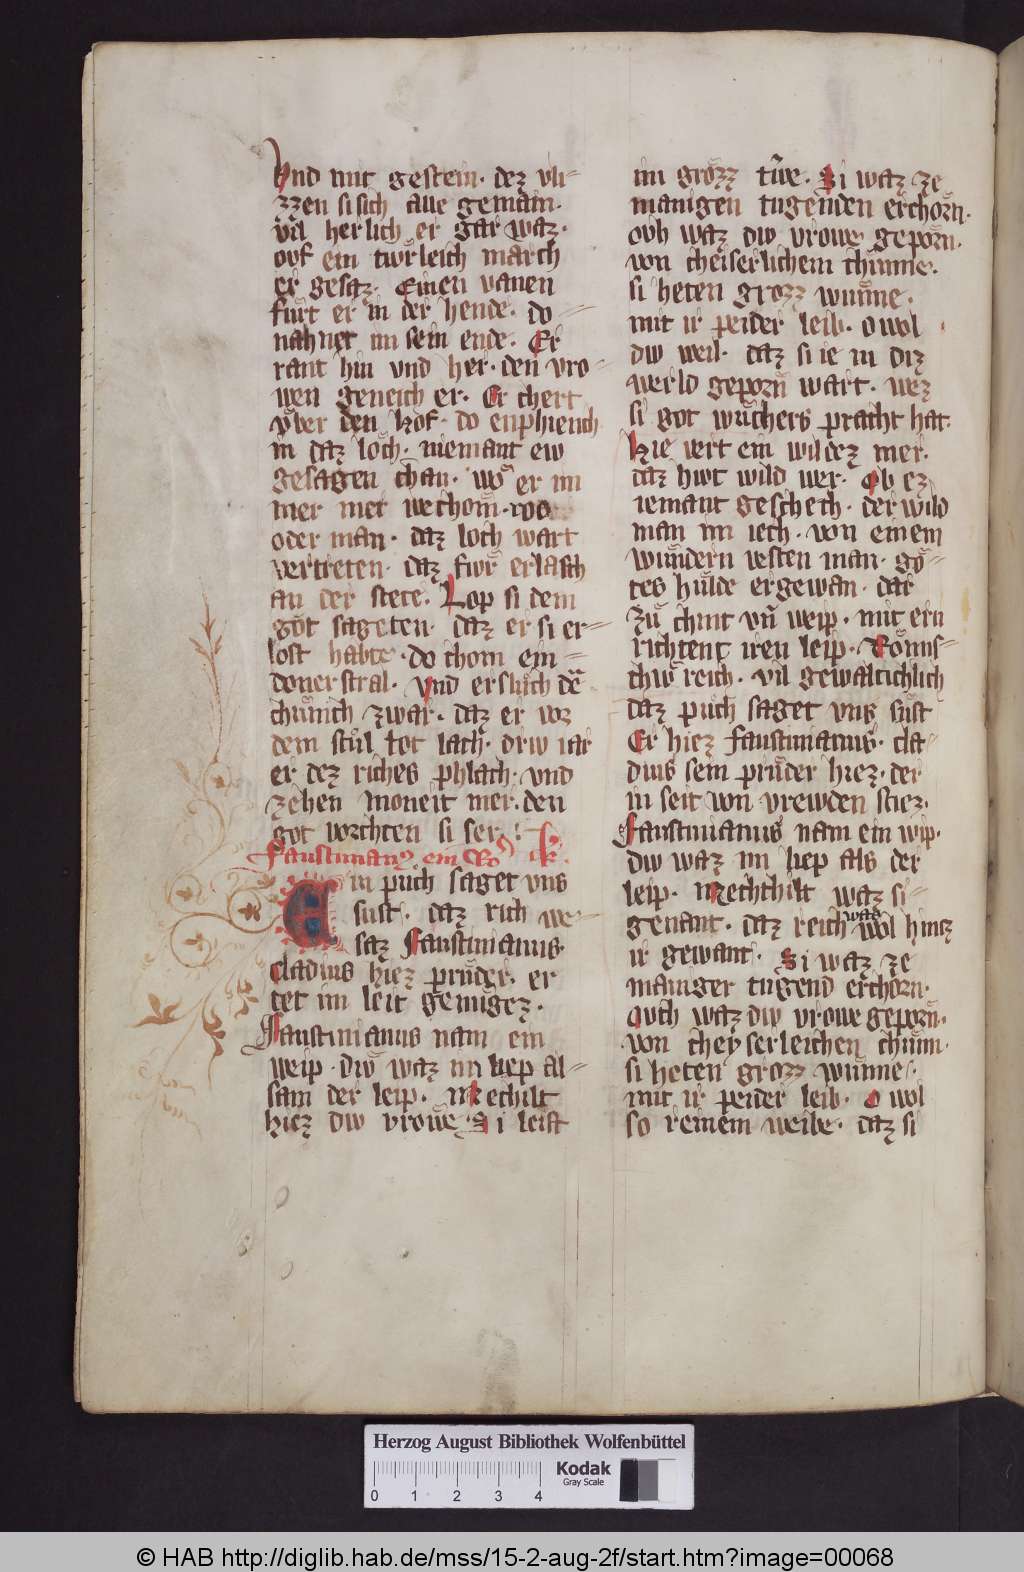 Vnd mit gestein· dez vli=
zzen si sich alle gemain·
vil herlich er gar waz·
ovf ein twͤrleich march
er gesaz· Einen vanen
fuͤrt er in der hende· do =
nahnet im sein ende· Er
rant hin vnd her· den vro=
wen geneich er· Er chert
vͤber den hof· do enphiench
in daz loch· niemant ew
gesagen chan· wo er im
mer mer wechom· ros
oder man· daz loch wart
vertreten· daz fwͤr erlasch
an der stete· Lop si dem
got sageten· daz er si er=
lost habte· do chom ein =
donerstral· vnd ersluch dē
chuͤnich zwar· daz er vor
dem stuͤl tot lach· driw iar
er dez riches phlach· vnd
zehen moneit mer· den
got vorchten si ser·
Faustinianꝰ ein Roͤ  k·
Ein puͤch saget vns
sust· daz rich we=
saz Faustinianus·
cladius hiez pruͤder· er
tet im leit genuͤgez·
Faustinianus nam ein
weip· diw waz im liep al=
sam der leip· Mechilt
hiez diw vrowe· Si leist
im grozz trͤwe· Si waz ze
manigen tugenden erchorn·
ovh waz diw vrowe geporn·
von cheiserlichem chuͤnne·
si heten grozz wunne·
mit ir peider leib· O wol
diw weil· daz si ie in diz
werld geporn wart· wez
si got wuͤchers pracht hat·
Hie vert ein wildez mer·
daz hiwt wild wer· Ob ez
iemant geschech· der wild
man im iech· von einem
wundern vesten man· go=
tes huͤlde ergewan· dar
zuͤ chint vn̄ weip· mit ern
richtent iren leip· Roͤmis=
chiv reich· vil gewaltichlich
daz puͤch saget vns suͤst
Er hiez Faustinianus· cla=
dius sein pruͤder hiez· der
in seit von vrewden stiez·
Faustinianus nam ein wip·
diw waz im liep als der
leip· Mechthilt waz si =
genant· daz reich was wol hinz
ir gewant· Si waz ze
maniger tugend erchorn·
Ovch waz diw vrowe geporn·
von cheyserleichen chuͤnn·
si heten grozz wunne·
mit ir peider leib· O wol
so reinem weibe· daz si
Herzog August Bibliothek Wolfenbüttel
0 1 2 3 4
Kodak
Gray Scale
© HAB http://diglib.hab.de/mss/15-2-aug-2f/start.htm?image=00068